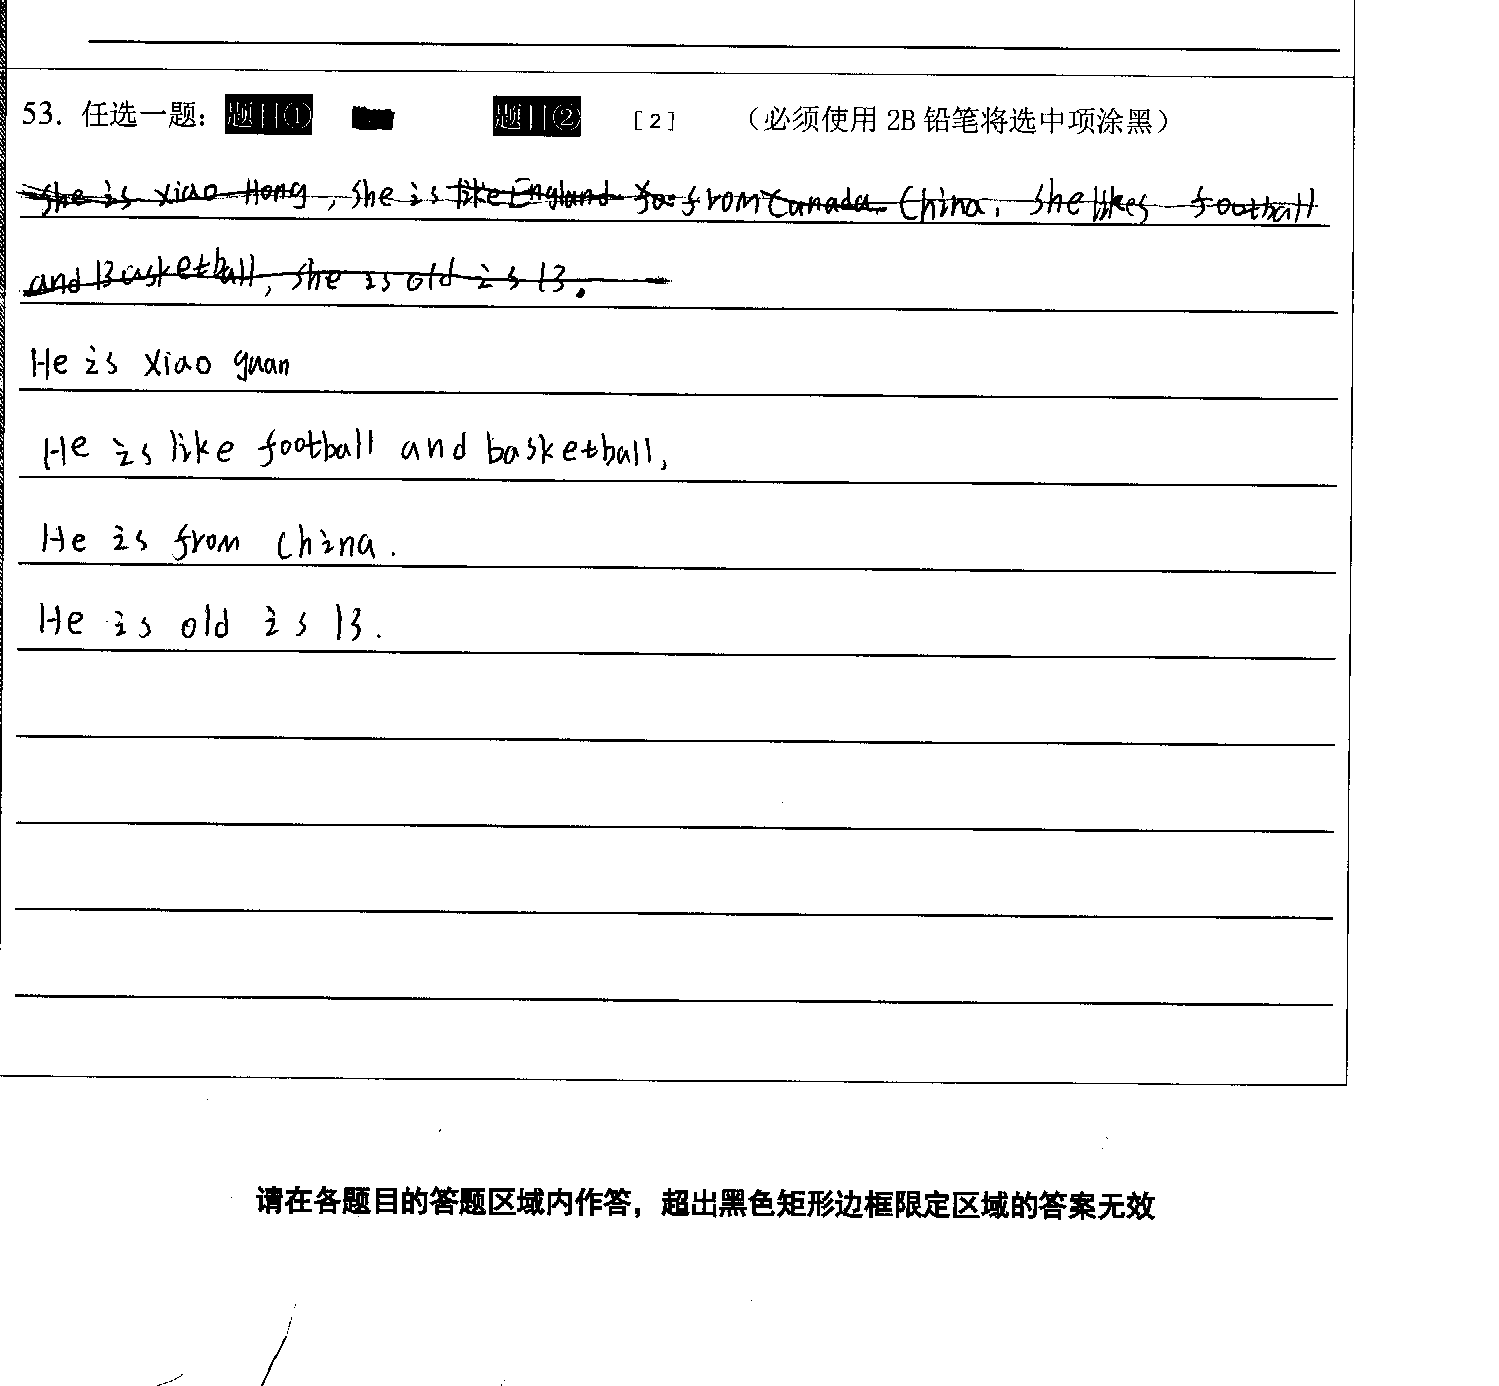 53. 任选一题： 题目① 题目② [2] （必须使用 2B 铅笔将选中项涂黑）
She is xiao Hong, she is like England from Canada. China. She likes football
and Basketball, she is old is 13.
He is xiao guan
He is like football and basketball,
He is from China.
He is old is 13.
请在各题目的答题区域内作答，超出黑色矩形边框限定区域的答案无效